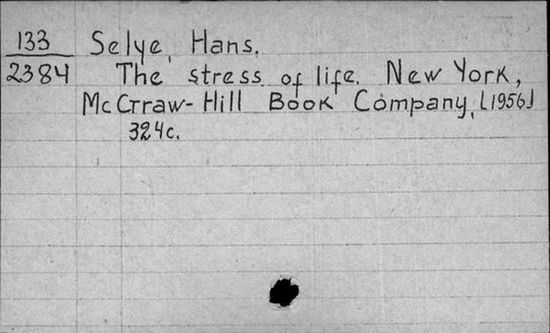 133 Selye, Hans.
2384 The stress of life. New York,
McGraw-Hill Book Company, [1956]
324c.